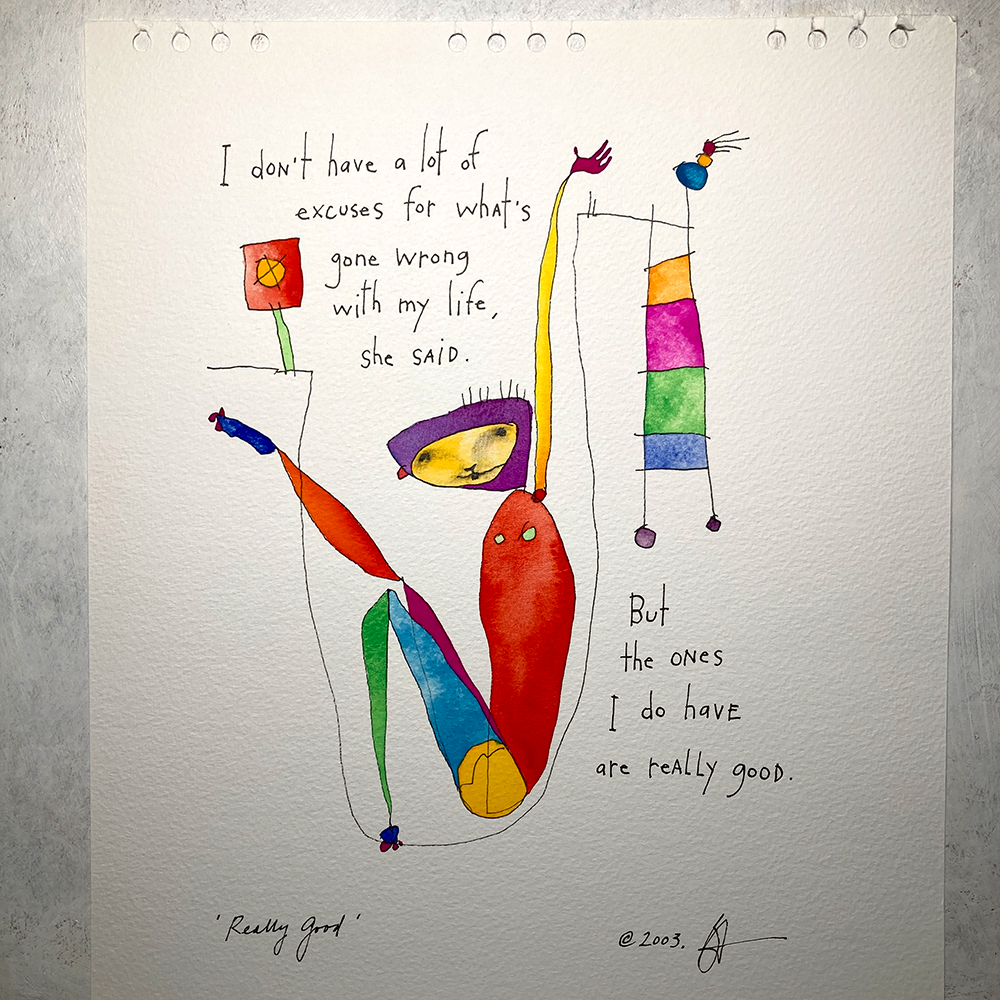 I don't have a lot of
excuses for what's
gone wrong
with my life,
she said.
But
the ones
I do have
are really good.
'Really Good'
© 2003.